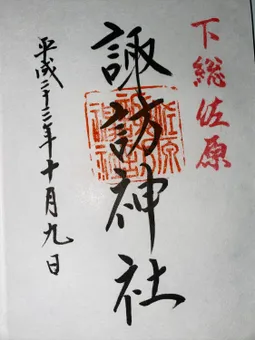 下総佐原
諏訪神社
平成二十三年十月九日